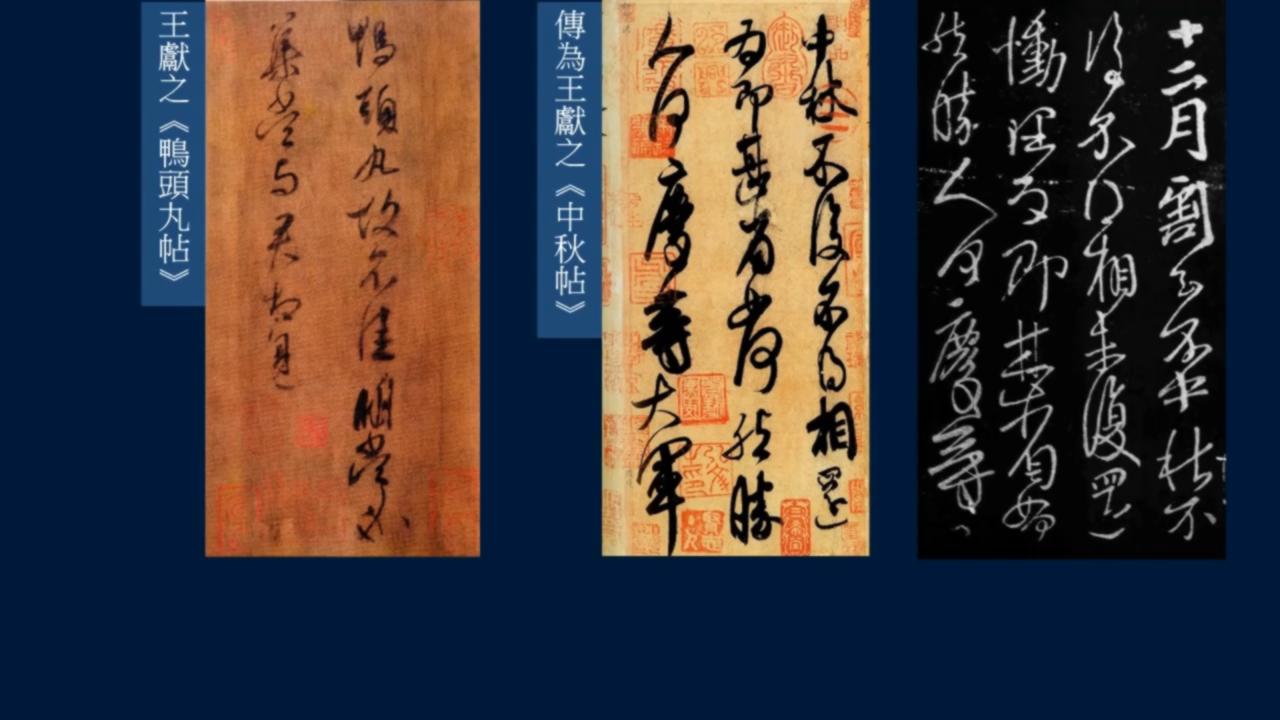 王獻之《鴨頭丸帖》
鴨頭丸故不佳明當必
集當與君相見
傳為王獻之《中秋帖》
中秋不復不得相還
為即甚省如何然勝
人何慶等大軍
十二月割至不中秋不
復不得相未復還
慟理為即甚省如何
然勝人何慶等